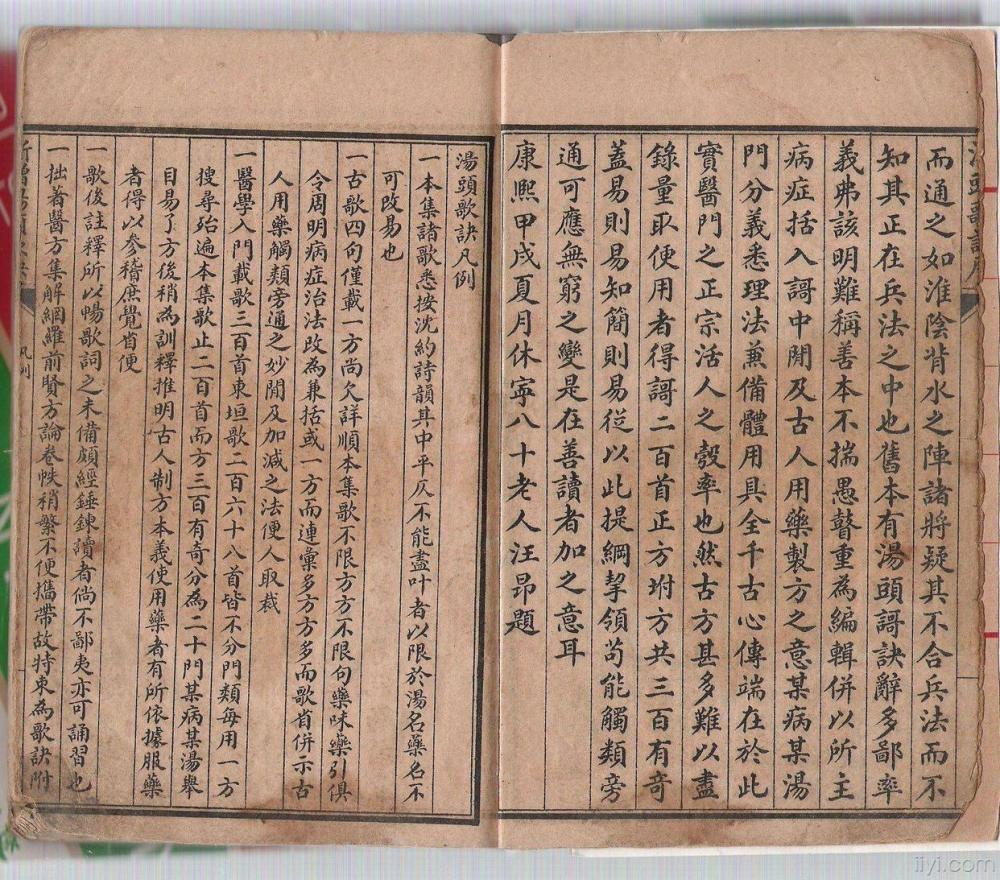 而通之如淮陰背水之陣諸將疑其不合兵法而不
知其正在兵法之中也舊本有湯頭謌訣辭多鄙率
義弗該明難稱善本不揣愚瞽重為編輯併以所主
病症括入謌中閒及古人用藥製方之意某病某湯
門分義悉理法兼備體用具全千古心傳端在於此
實醫門之正宗活人之彀率也然古方甚多難以盡
錄量取便用者得謌二百首正方坿方共三百有奇
蓋易則易知簡則易從以此提綱挈領苟能觸類旁
通可應無窮之變是在善讀者加之意耳
康熙甲戌夏月休寧八十老人汪昂題
湯頭歌訣凡例
一本集諸歌悉按沈約詩韻其中平仄不能盡叶者以限於湯名藥名不
可改易也
一古歌四句僅載一方尚欠詳順本集歌不限方方不限句藥味藥引俱
令周明病症治法改為兼括或一方而連彙多方方多而歌省併示古
人用藥觸類旁通之妙閒及加減之法便人取裁
一醫學入門載歌三百首東垣歌二百六十八首皆不分門類每用一方
搜尋殆遍本集歌止二百首而方三百有奇分為二十門某病某湯舉
目易了方後稍為訓釋推明古人制方本義使用藥者有所依據服藥
者得以參稽庶覺省便
一歌後註釋所以暢歌詞之未備頗經錘鍊讀者倘不鄙夷亦可誦習也
一拙著醫方集解網羅前賢方論卷帙稍繁不便攜帶故特束為歌訣附
凡例
iiyi.com